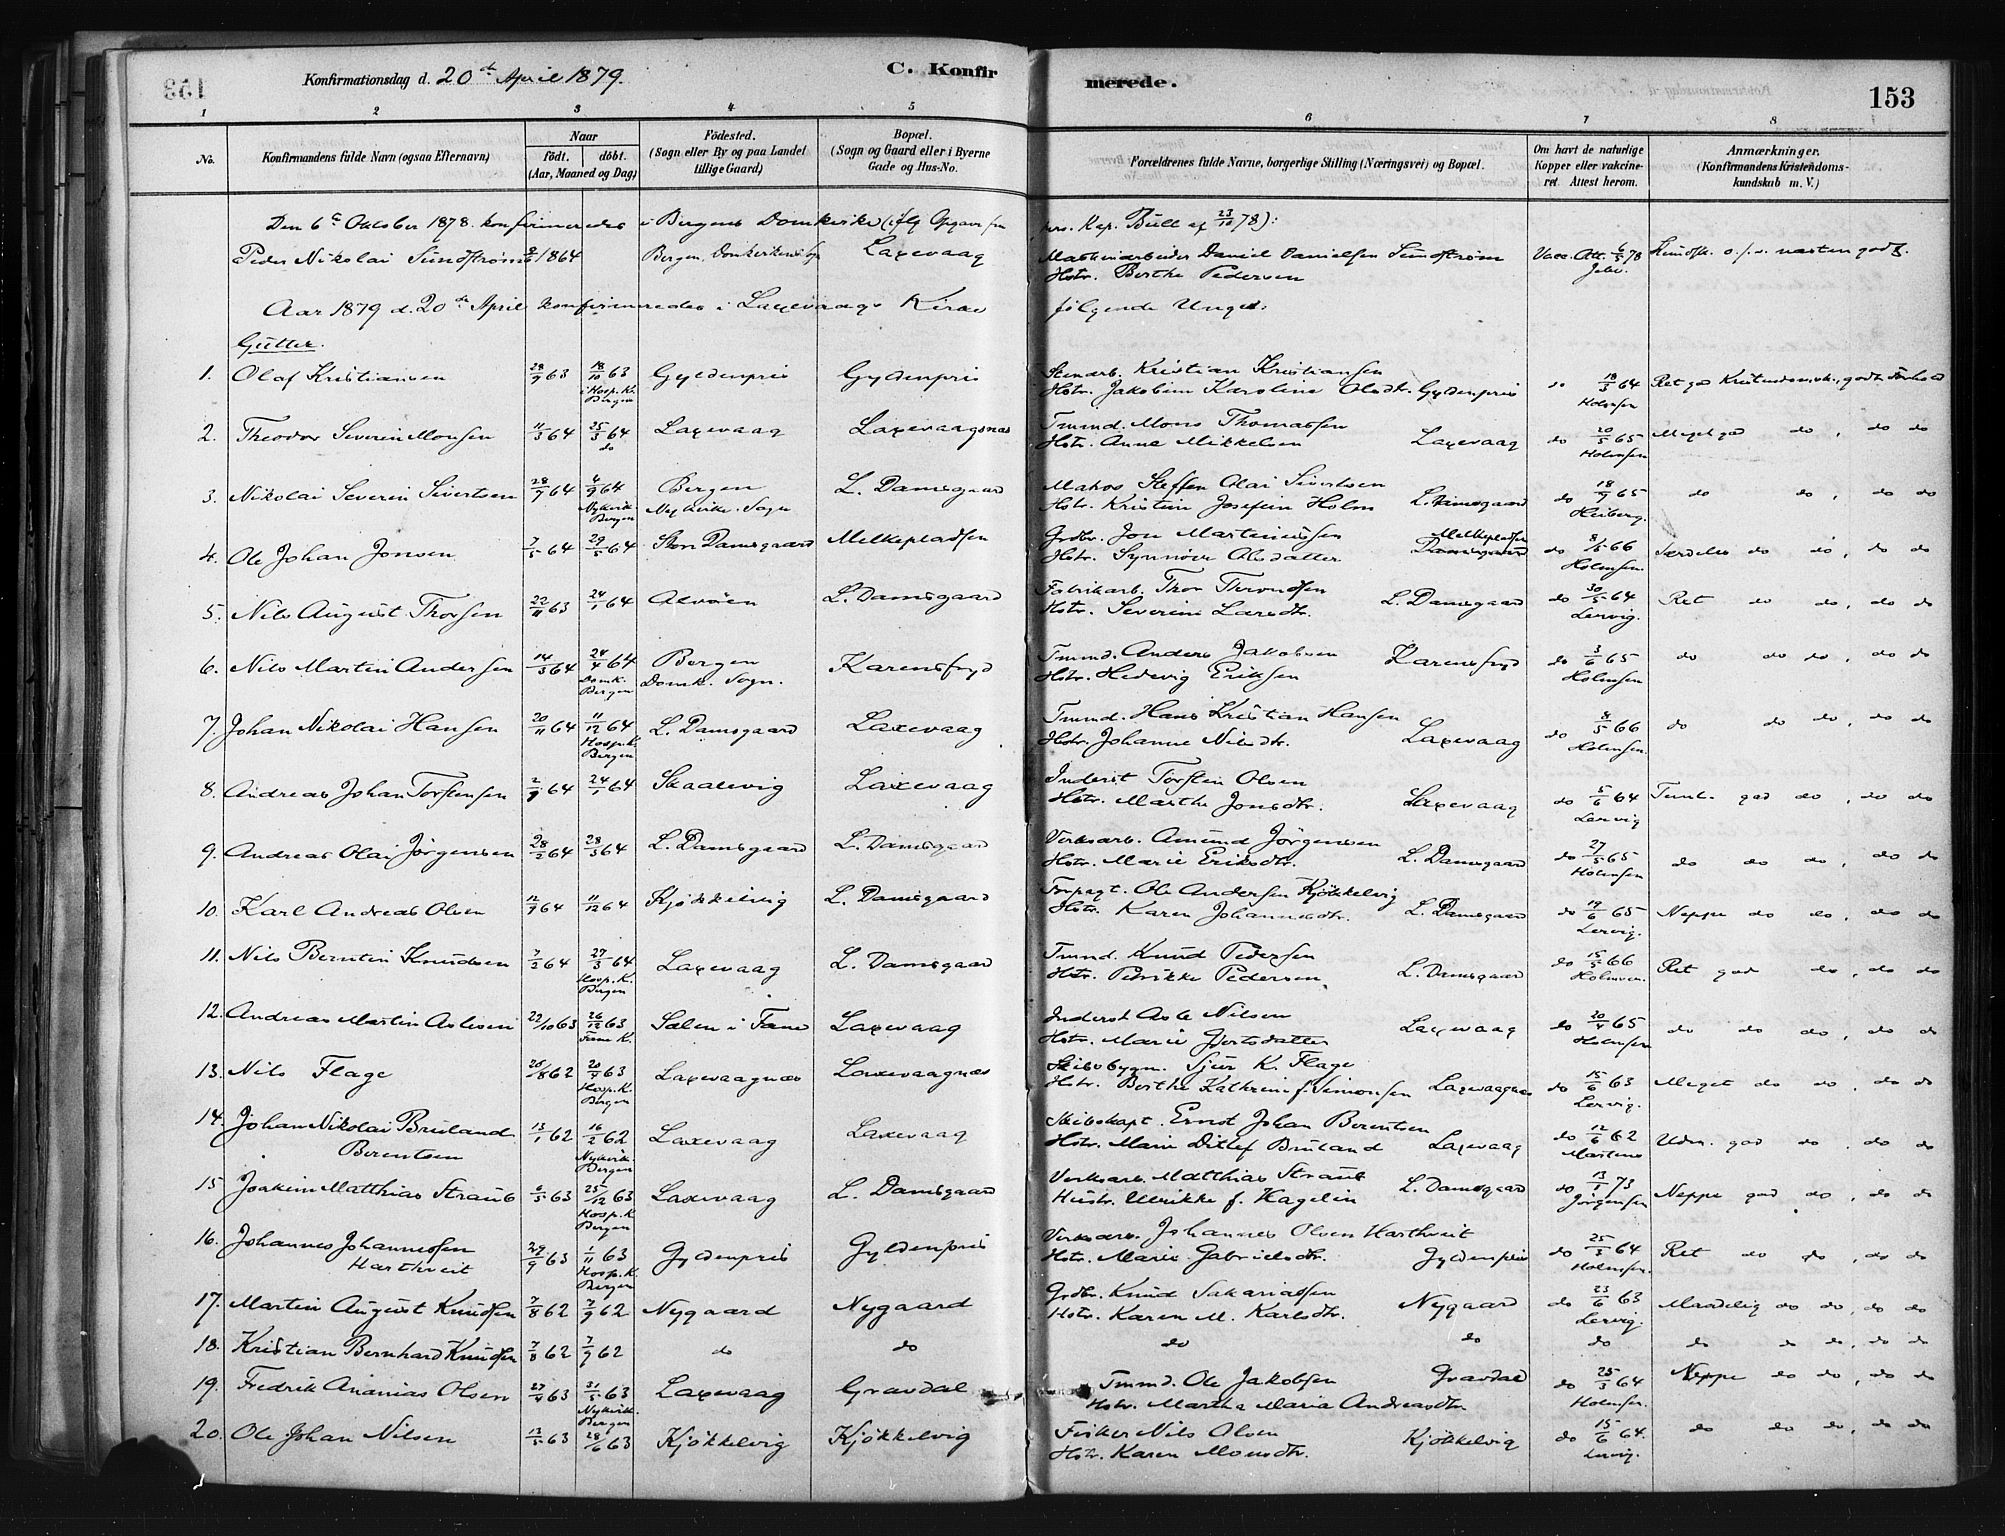 Konfirmationsdag d. 20de April 1879.
C. Konfirmerede.
153
1 2 3 4 5 6 7 8
No.
Konfirmandens fulde Navn (ogsaa Efternavn)
Naar
födt. döbt.
(Aar, Maaned og Dag)
Födested.
(Sogn eller By og paa Landet tillige Gaard)
Bopæl.
(Sogn og Gaard eller i Byerne Gade og Hus-No.
Forældrenes fulde Navne, borgerlige Stilling (Næringsvei) og Bopæl.
Om havt de naturlige Kopper eller vakcineret Attest herom.
Anmærkninger.
(Konfirmandens Kristendomskundskab m. V.)
Den 6te Oktober 1878 konfirmeredes i Bergens Domkirke (iflg Opgave fra pers. Kap. Bull af 23/10 78):
Peder Nikolai Sundstrøm 1864 Bergen, Domkirkens Laxevaag Maskinarbeider Daniel Danielsen Sundstrøm Vacc. Att. 6/5 78 næsten godt.
Hstr. Berthe Pedersen
Aar 1879 d. 20de April konfirmeredes i Laxevaags Kirke følgende Unge:
Gutter.
1. Olaf Kristiansen 28/9 63 18/10 63 Gyldenpris Gyldenpris Stenarb. Kristian Kristiansen do 18/3 64 Ret god Kristendomsk., godt Forhold
i Hosp. K. Bergen Hstr. Jakobine Karoline Olsdtr. Gyldenpris Holmsen
2. Theodor Severin Monsen 11/3 64 25/3 64 Laxevaag Laxevaagsnæs Tmmd. Mons Thomassen do 20/5 65 Meget god do, do do
do Hstr. Anne Mikkelsen Laxevaag Holmsen
3. Nikolai Severin Sivertsen 28/7 64 4/9 64 Bergen L. Damsgaard Matros Steffen Olai Sivertsen do 18/9 65 do do, do do
Nykirk. Bergen Nykirke. Sogn Hstr. Kristine Josefine Holm L. Damsgaard Heiberg.
4. Ole Johan Jonsen 7/5 64 29/5 64 Store Damsgaard Melkepladsen Grdbr. Jon Martinussen Melkepladsen do 8/5 66 Særdeles do do, do do
Hstr. Synnöve Olsdatter Damsgaard Holmsen
5. Nils August Thorsen 22/11 63 24/1 64 Alvöen L. Damsgaard Fabrikarb. Thor Thorsen do 30/5 64 Ret do do, do do
Hstr. Severine Larsdtr. L. Damsgaard Lervig.
6. Nils Martin Andersen 14/3 64 24/4 64 Bergen Karensfryd Tmmd. Anders Jakobsen Karensfryd do 3/6 65 do do do, do do
Domk. Bergen Domk. Sogn. Hstr. Hedevig Eriksen Holmsen
7. Johan Nikolai Hansen 20/11 64 11/12 64 L. Damsgaard Laxevaag Tmmd. Hans Kristian Hansen do 8/5 66 do do do, do do
Hosp. K. Bergen Hstr. Johanne Nilsdtr. Laxevaag Holmsen
8. Andreas Johan Torstensen 64 24/1 64 Skaalevig Laxevaag Inderst Torsten Olsen do 5/6 64 Teml. god do, do do
Hstr. Marthe Jonsdtr. Laxevaag Lervig
9. Andreas Olai Jörgensen 28/2 64 28/3 64 L. Damsgaard L. Damsgaard Verksarb. Amund Jörgensen do 27/5 65 do do do, do do
Hstr. Marie Eriksdtr. L. Damsgaard Holmsen
10. Karl Andreas Olsen 12/9 64 11/12 64 Kjökkelvig L. Damsgaard Ole Andersen Kjökkelvig do 19/6 65 Neppe do do, do do
Hstr. Karen Johannesdtr. L. Damsgaard Lervig.
11. Nils Berntin Knudsen 7/2 64 27/3 64 Laxevaag L. Damsgaard Tmmd. Knud Pedersen do 15/5 66 Ret god do, do do
Hosp. K. Bergen Hstr. Petrikke Pedersen. L. Damsgaard Holmsen.
12. Andreas Martin Aslesen 22/10 63 26/12 63 Sælen i Fane Laxevaag Inderst Asle Nilsen do 20/4 65 do do do, do do
Fane K. Hstr. Marie Gjertsdatter Laxevaag Holmsen
13. Nils Flage 26/8 62 20/9 63 Laxevaagnæs Laxevaagnæs Skibsbygm. Sjur K. Flage do 15/6 63 Meget do do, do do
Hosp. K. Bergen Hstr. Berthe Kathrine f. Simonsen Laxevaagnæs Lervig.
14. Johan Nikolai Bruland Berentsen 13/1 62 16/2 62 Laxevaag Laxevaag Skibskapt. Ernst Johan Berentsen do 12/6 62 Udm. god do, do do
Nykirk. Bergen Hstr. Marie Ditlef Bruland Laxevaag Martens
15 Joakim Matthias Straub 63 25/12 63 Laxevaag L. Damsgaard Verksarb. Matthias Straub do 13/1 73 Neppe god do, do do
Hosp. K. Bergen Hustr. Ulrikke f. Hagelin L. Damsgaard Jörgensen
16. Johannes Johannessen Hartkveit 29/9 63 1/11 63 Gyldenpris Gyldenpris Verksarb. Johannes Olsen Hartkveit do 25/3 64 Ret do do, do do
Hosp. K. Bergen Hstr. Marie Gabrielsdtr. Gyldenpris Holmsen
17. Martin August Knudsen 7/8 62 7/9 62 Nygaard Nygaard Grdbr. Knud Sakariassen do 23/6 63 Maadelig do do, do do
Hstr. Karen M. Karlsdtr. Nygaard Lervig.
18. Kristian Bernhard Knudsen 7/8 62 7/9 62 do do do do do do do do, do do
19. Fredrik Ananias Olsen 27/4 63 31/5 63 Laxevaag Gravdal Tmmd. Ole Jakobsen Gravdal do 25/3 64 Neppe do do, do do
Nykirk. Bergen Hstr. Martha Maria Andreasdtr. Holmsen.
20. Ole Johan Nilsen 13/5 63 28/6 63 Kjökkelvig Kjökkelvig Fisker Nils Olsen do 15/6 64. do do do, do do
Hstr. Karen Monsdtr. Kjökkelvig Lervig.